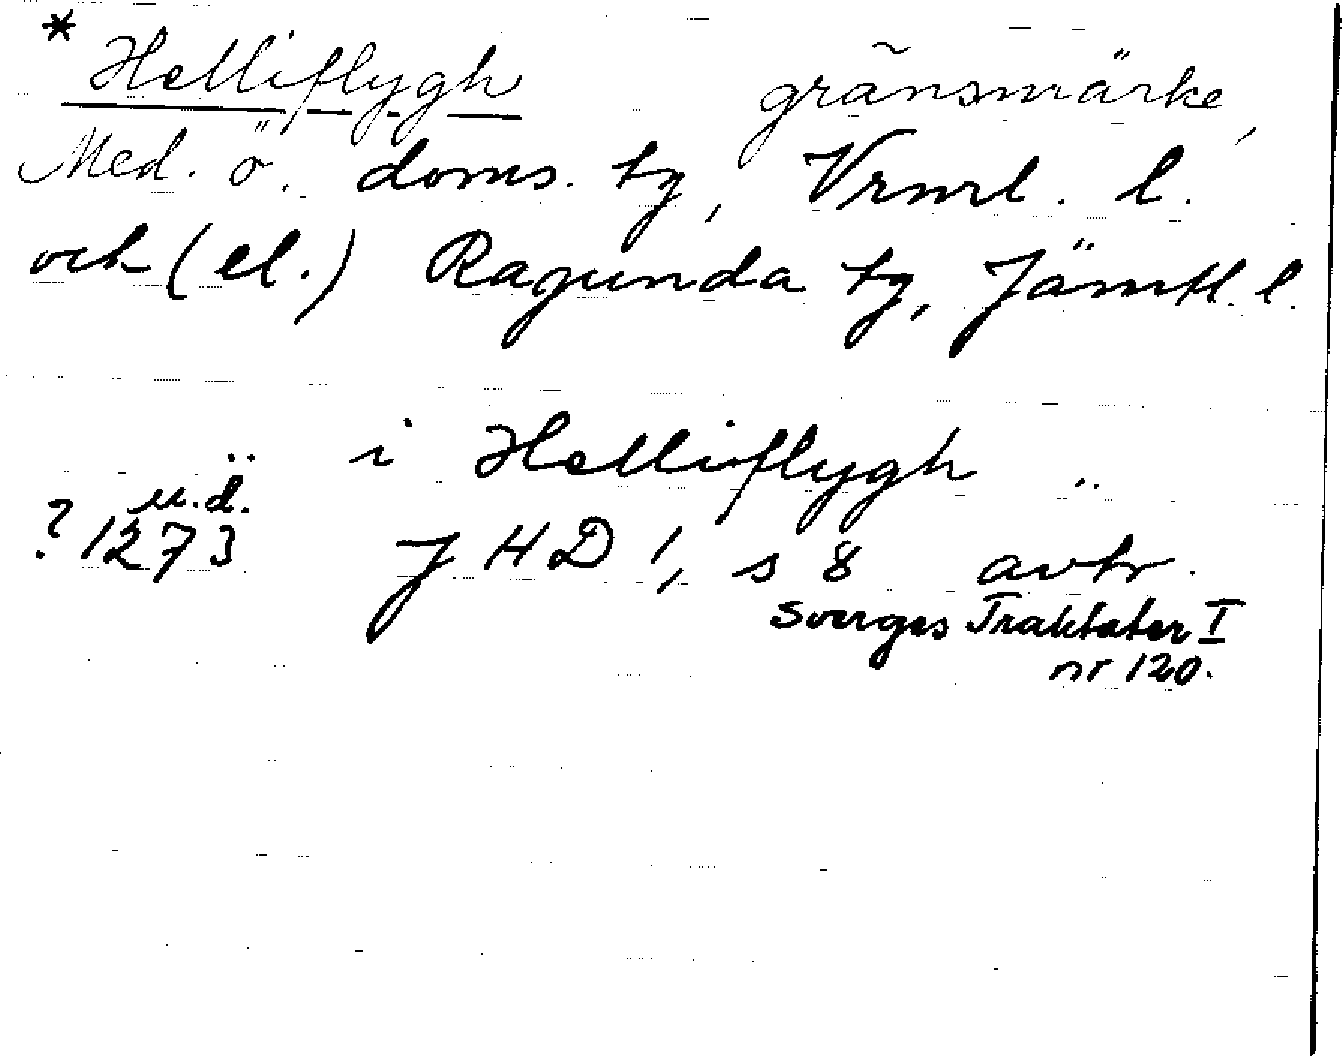 * Helliflygh gränsmärke,
Med. ö. doms. tg, Vrnrl. l.
och (el.) Ragunda tg, Jämtl. l.
.. i Helliflygh ..
u.d.
? 1273 JHD 1, s 8 avtr.
Sverges Traktater I
nr 120.